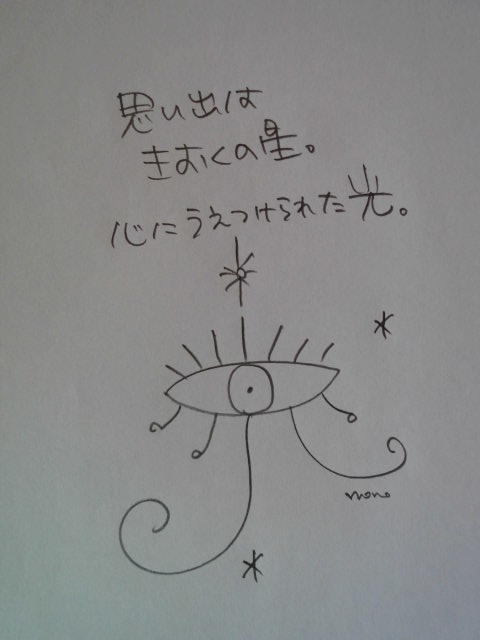 思い出は
きおくの星。
心にうえつけられた光。
mono